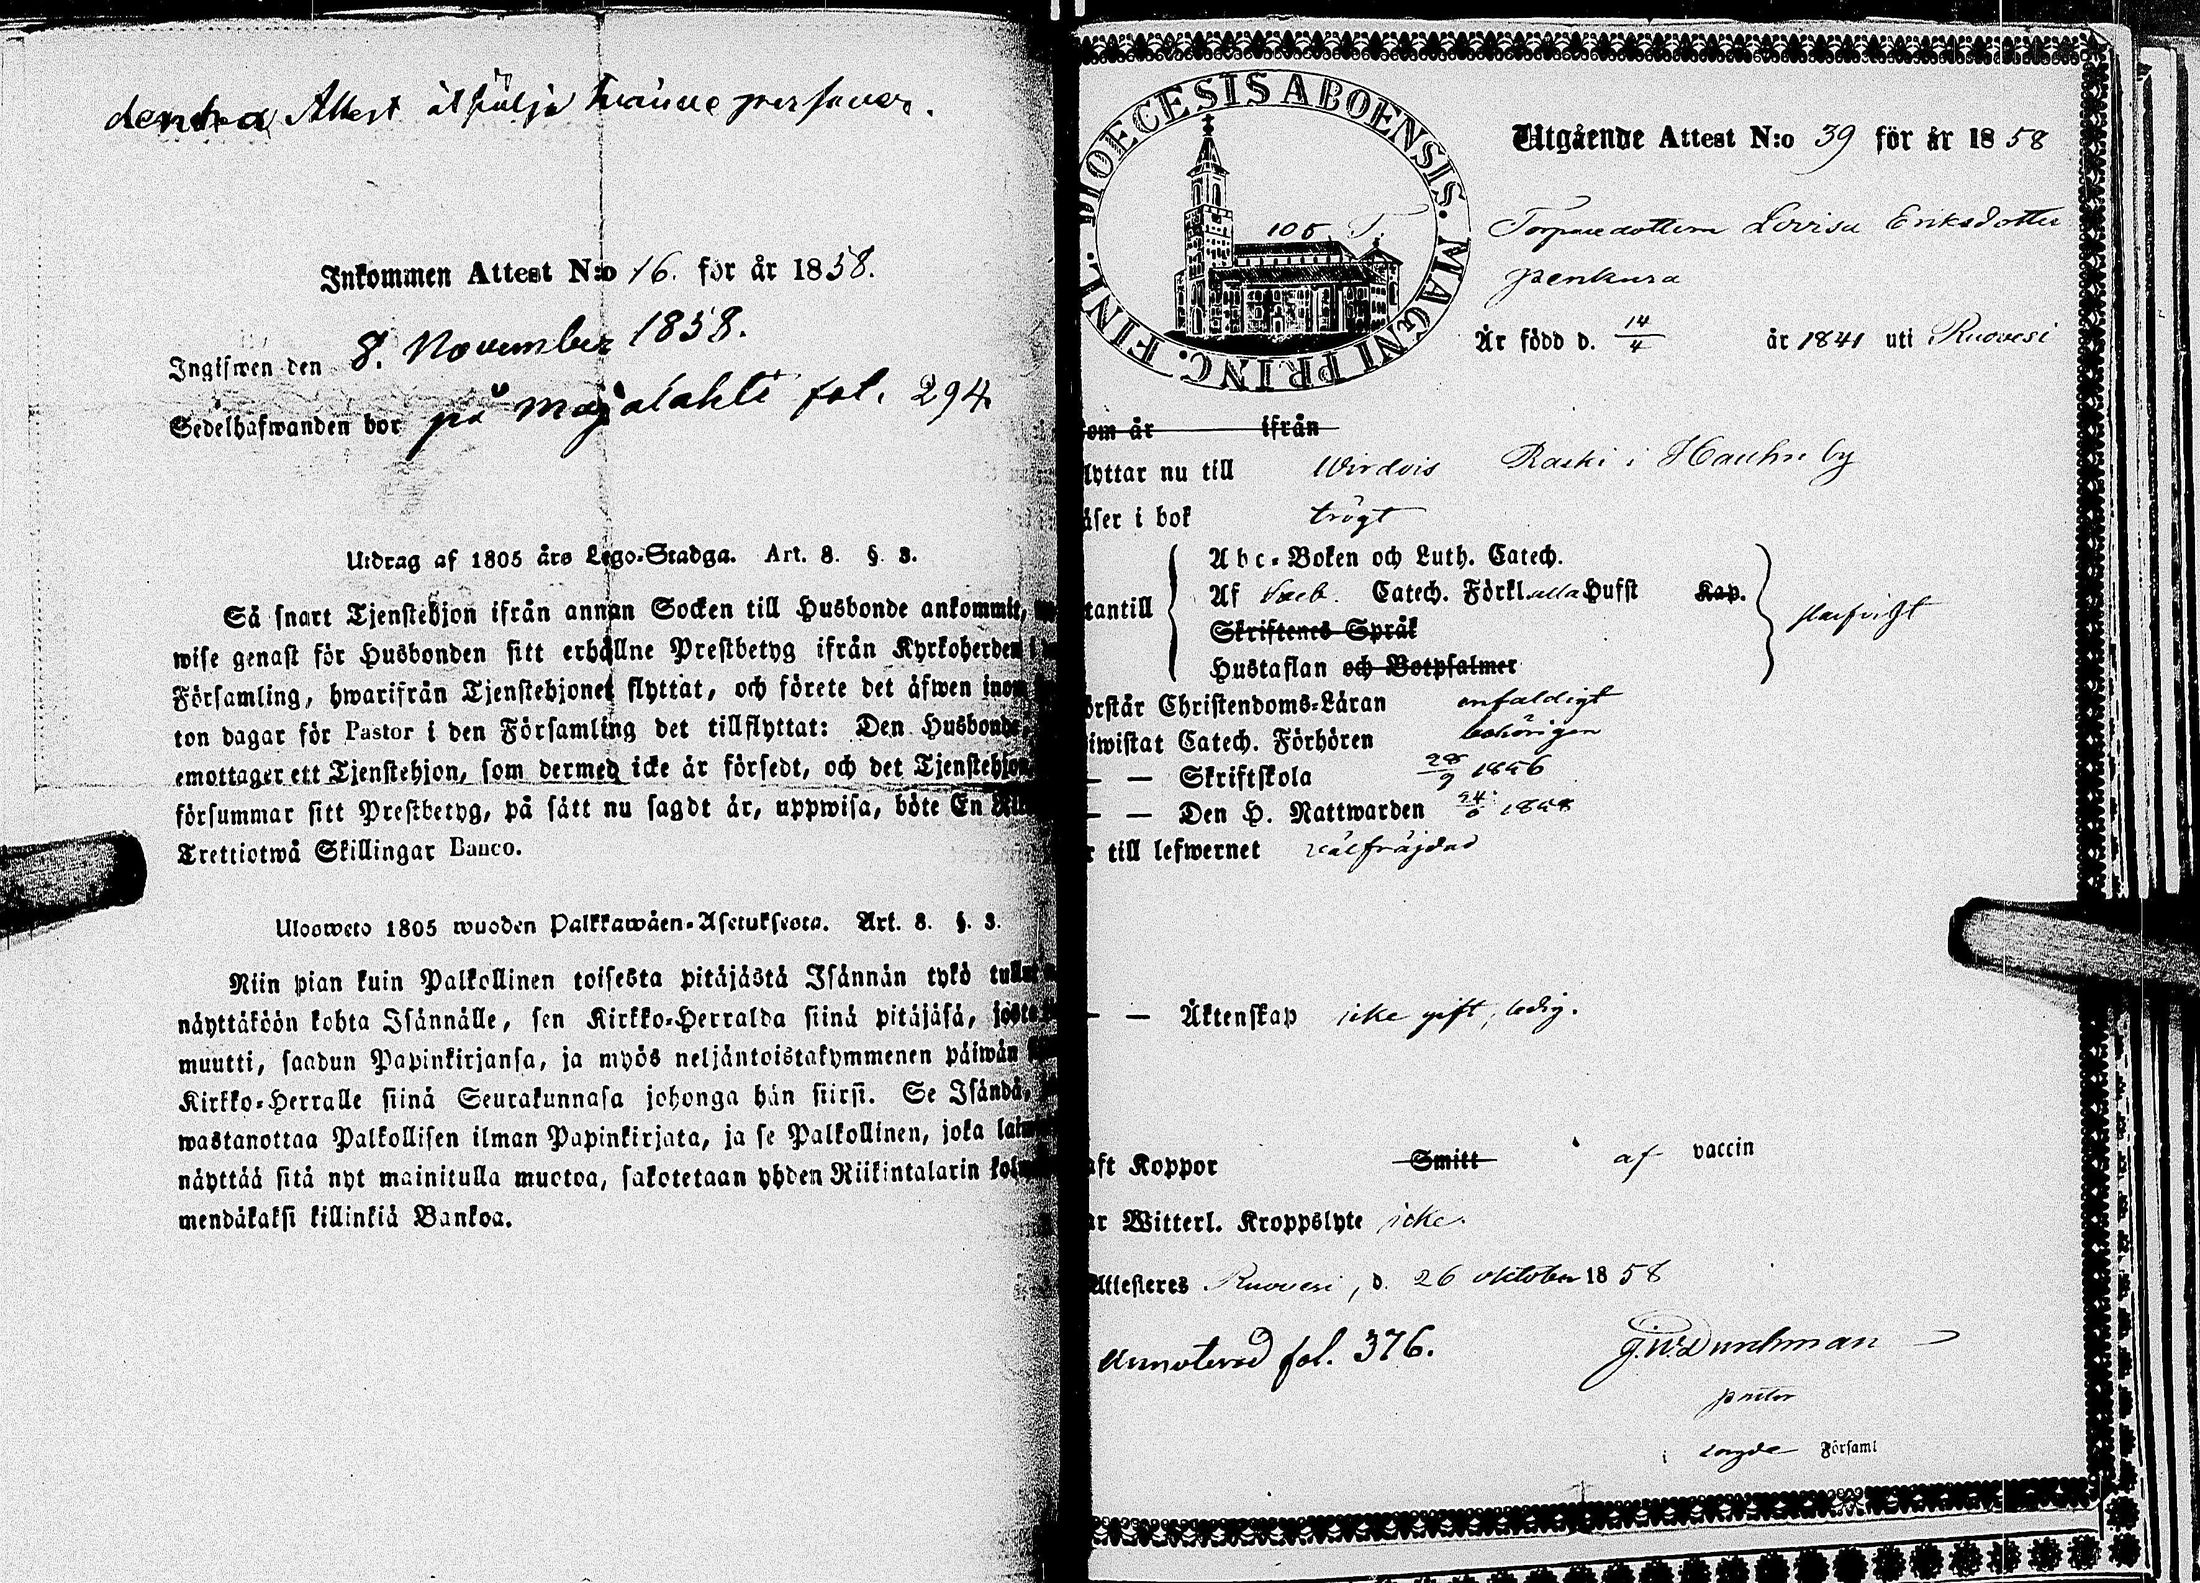 denna Attest åtfölja tvänne personer.
Inkommen Attest N:o 16. för år 1858.
Ingifwen den 8. November 1858.
Sedelhafwanden bor på Majalahti fol. 294.
Utdrag af 1805 års Lego-Stadga. Art. 8. §. 3.
Så snart Tjenstehjon ifrån annan Socken till Husbonde ankommit,
wise genast för Husbonden sitt erhållne Prestbetyg ifrån Kyrkoherden i
Församling, hwarifrån Tjenstehjonet flyttat, och förete det äfwen inom
ton dagar för Pastor i den Församling det tillflyttat: Den Husbonde,
emottager ett Tjenstehjon, som dermed icke är försedt, och det Tjenstehjon
försummar sitt Prestbetyg, på sätt nu sagdt är, uppwisa, böte En
Trettiotwå Skillingar Banco.
Ulosweto 1805 wuoden Palkkawäen-Asetuksesta. Art. 8. §. 3.
Niin pian kuin Palkollinen toisesta pitäjästä Isännän tykö tullut
näyttäköön kohta Isännälle, sen Kirkko-Herralda siinä pitäjäsä, josta
muutti, saadun Papinkirjansa, ja myös neljäntoistakymmenen päiwän
Kirkko-Herralle siinä Seurakunnasa johonga hän siirsi. Se Isändä,
wastanottaa Palkollisen ilman Papinkirjata, ja se Palkollinen, joka
näyttää sitä nyt mainitulla muotoa, sakotetaan yhden Riikintalarin
mendäkaksi killinkiä Bankoa.
DIOECESIS ABOENSIS. MAGNI PRINC. FINL.
105 T.
Utgående Attest N:o 39 för år 1858
Torparedottern Lovisa Eriksdotter
Penkura
Är född d. 14/4 år 1841 uti Ruovesi
om är ifrån
lyttar nu till Wirdois Raski i Hauhu by
äser i bok trögt
Abc-Boken och Luth. Catech.
tantill Af Sveb. Catech. Förkl. alla Hufst Kap.
Skriftenes Språk
Hustaflan och Botpsalmer
örstår Christendoms-Läran enfaldigt
iwistat Catech. Förhören behörigen
— — Skriftskola 28/9 1856
— — Den H. Nattwarden 24/6 1858
r till lefwernet välfräjdad
— — Äktenskap icke gift, ledig.
aft Koppor Smitt af vaccin
ar Witterl. Kroppslyte icke.
Attesteres Ruovesi, d. 26 oktober 1858
Annoterad fol. 376.
G.W. Durchman
pastor
i Församl